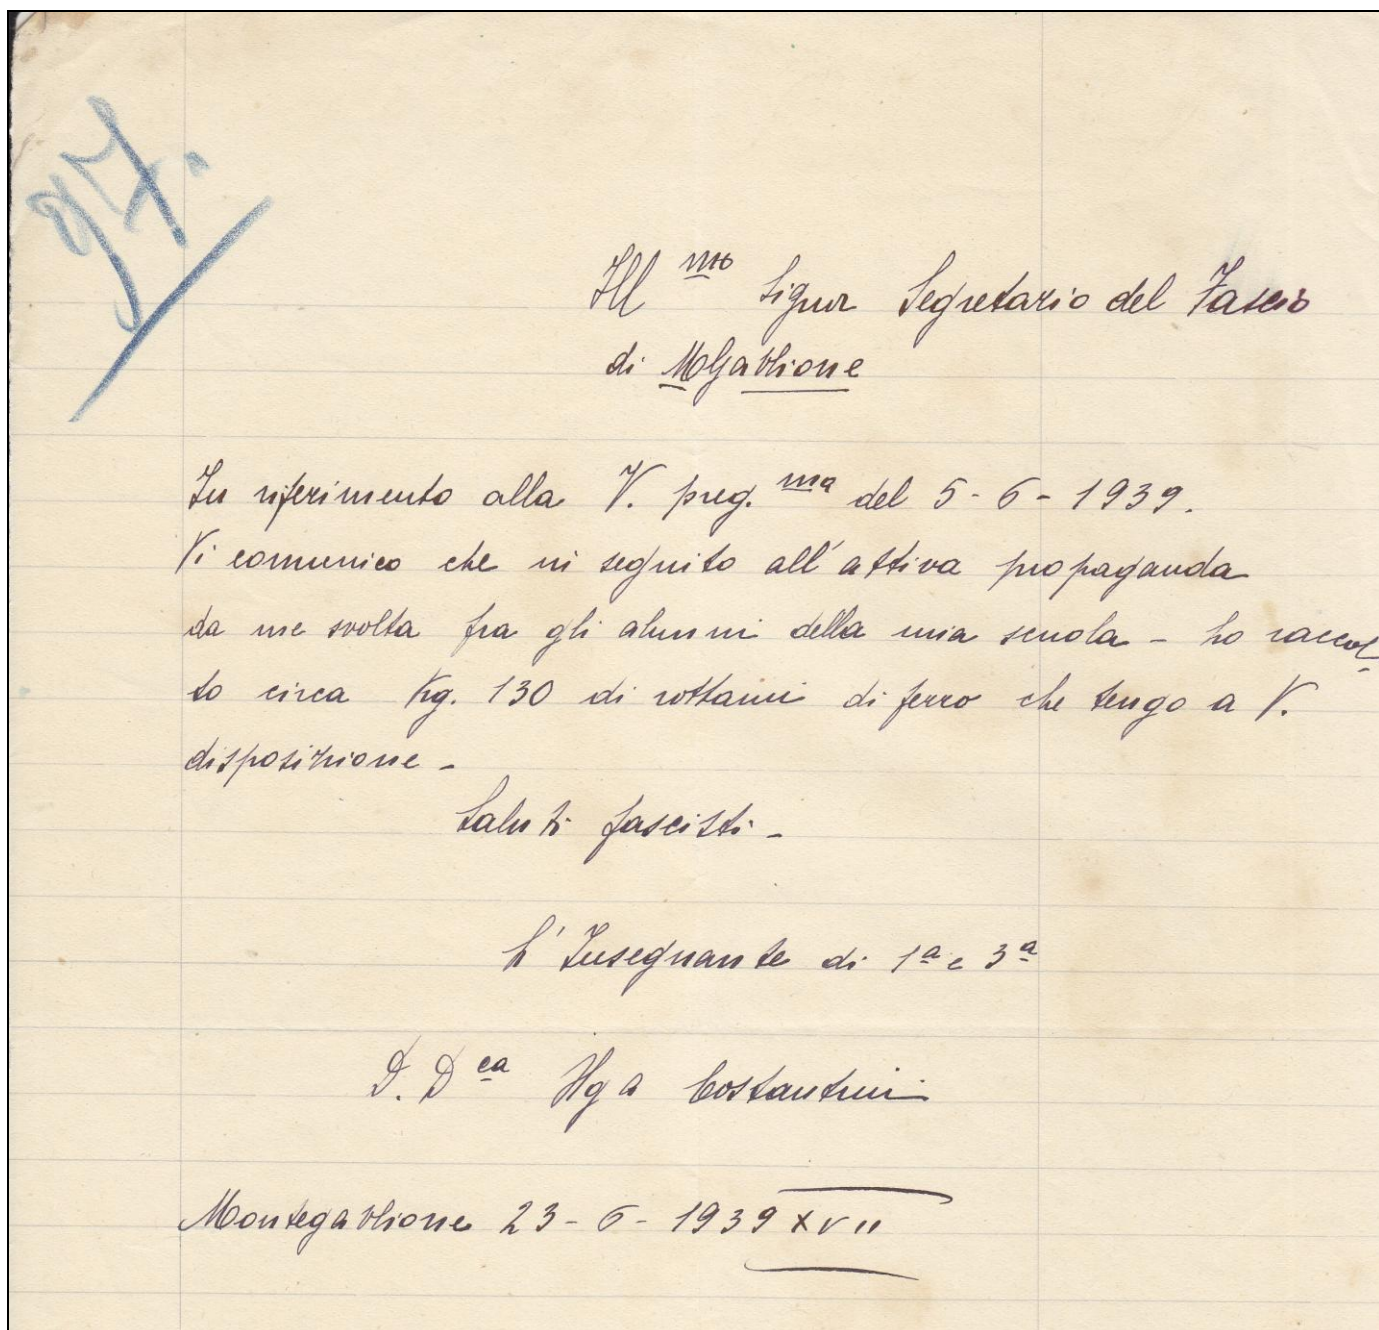 97.
Ill mo Signor Segretario del Fascio
di MGabbione
In riferimento alla V. preg. ma del 5-6-1939.
Vi comunico che in seguito all'attiva propaganda
da me svolta fra gli alunni della mia scuola - ho raccol-
to circa Kg. 130 di rottami di ferro che tengo a V.
disposizione -
Saluti fascisti -
L'Insegnante di 1ª e 3ª
D. D ca Costantini
Montegabbione 23-6-1939 XVII